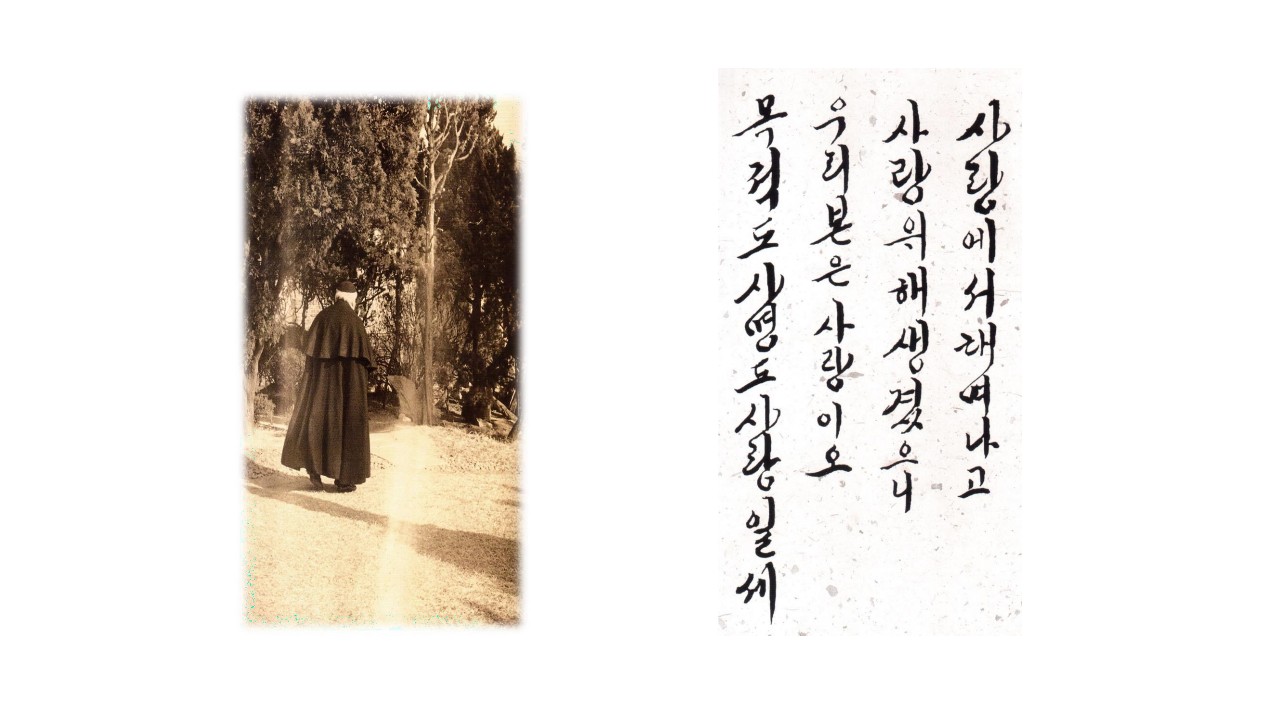 사랑에서태여나고
사랑위해생겼으니
우리본은사랑이오
목적도사명도사랑일세